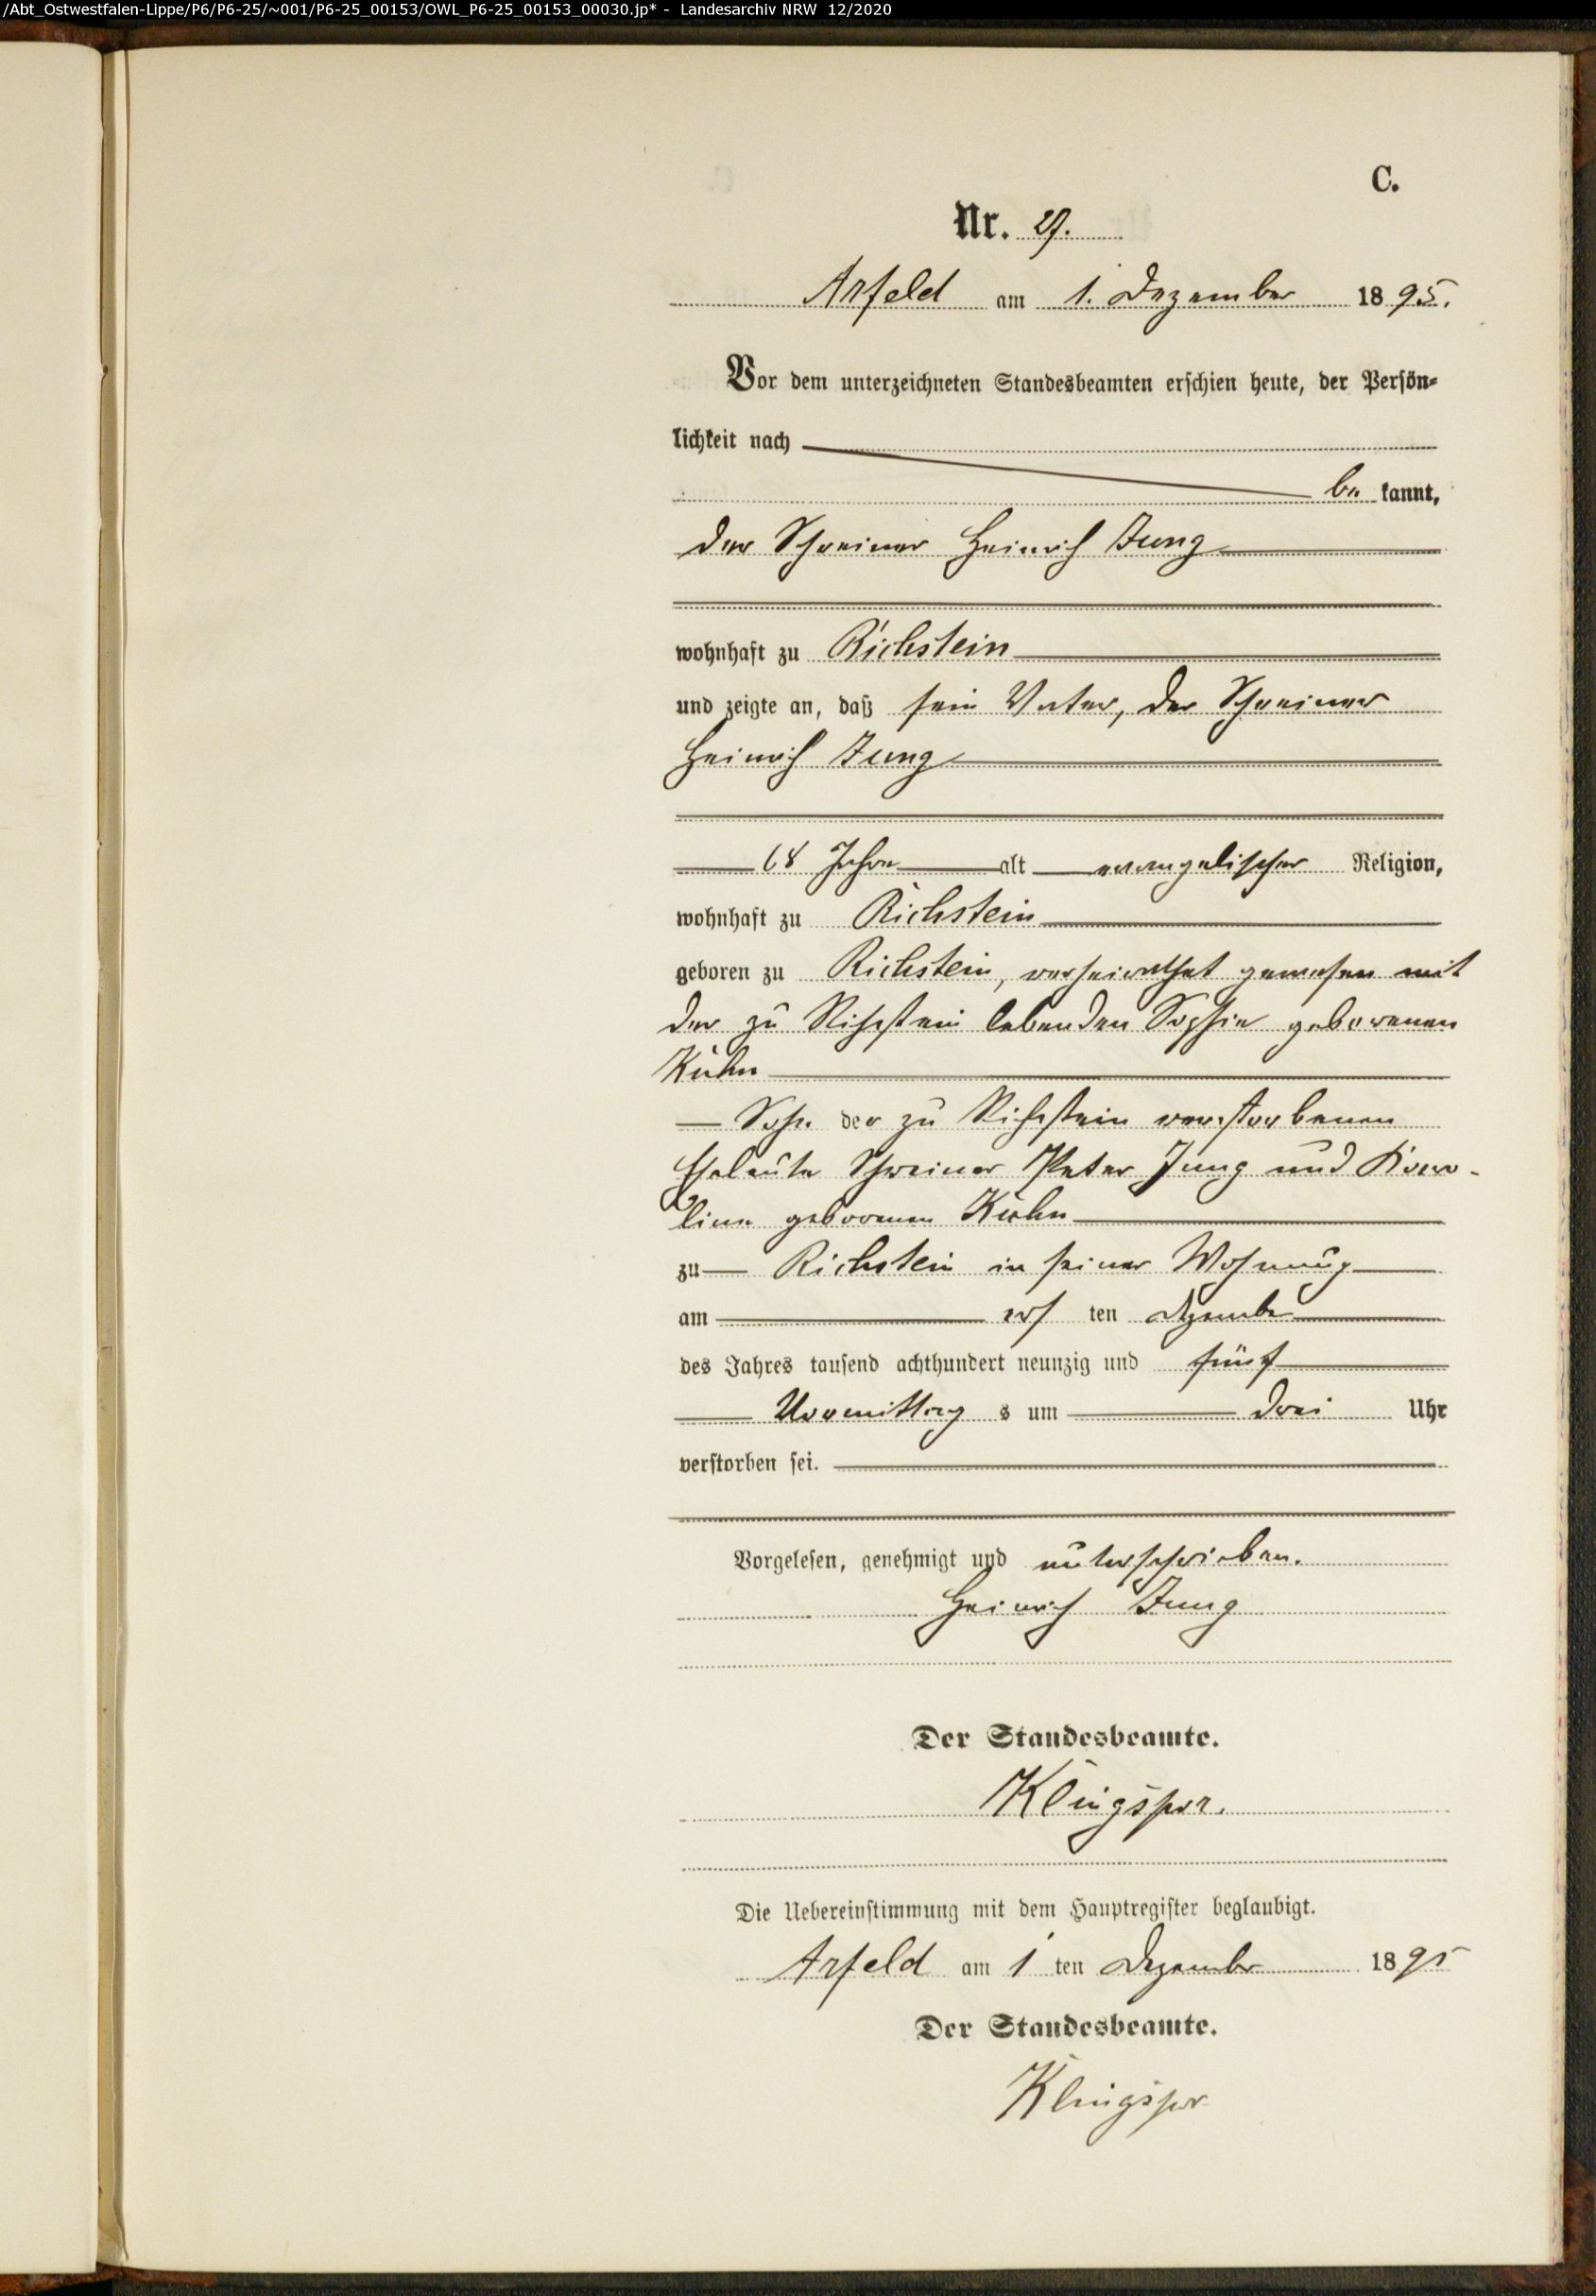 /Abt_Ostwestfalen-Lippe/P6/P6-25/~001/P6-25_00153/OWL_P6-25_00153_00030.jp* - Landesarchiv NRW 12/2020
C.
Nr. 29.
Arfeld am 1. Dezember 1895.
Vor dem unterzeichneten Standesbeamten erschien heute, der Persön-
lichkeit nach
be kannt,
der Schreiner Heinrich Jung
wohnhaft zu Richstein
und zeigte an, daß sein Vater, der Schreiner
Heinrich Jung
68 Jahre alt evangelischer Religion,
wohnhaft zu Richstein
geboren zu Richstein, verheirathet gewesen mit
der zu Richstein lebenden Sophie geborenen
Kuhn
Sohn der zu Richstein verstorbenen
Eheleute Schreiner Peter Jung und Karo-
line geborenen Kuhn
zu Richstein in seiner Wohnung
am ers ten Dezember
des Jahres tausend achthundert neunzig und fünf
Vormittag s um drei Uhr
verstorben sei.
Vorgelesen, genehmigt und unterschrieben.
Heinrich Jung
Der Standesbeamte.
Klingspor.
Die Uebereinstimmung mit dem Hauptregister beglaubigt.
Arfeld am 1 ten Dezember 1895
Der Standesbeamte.
Klingspor